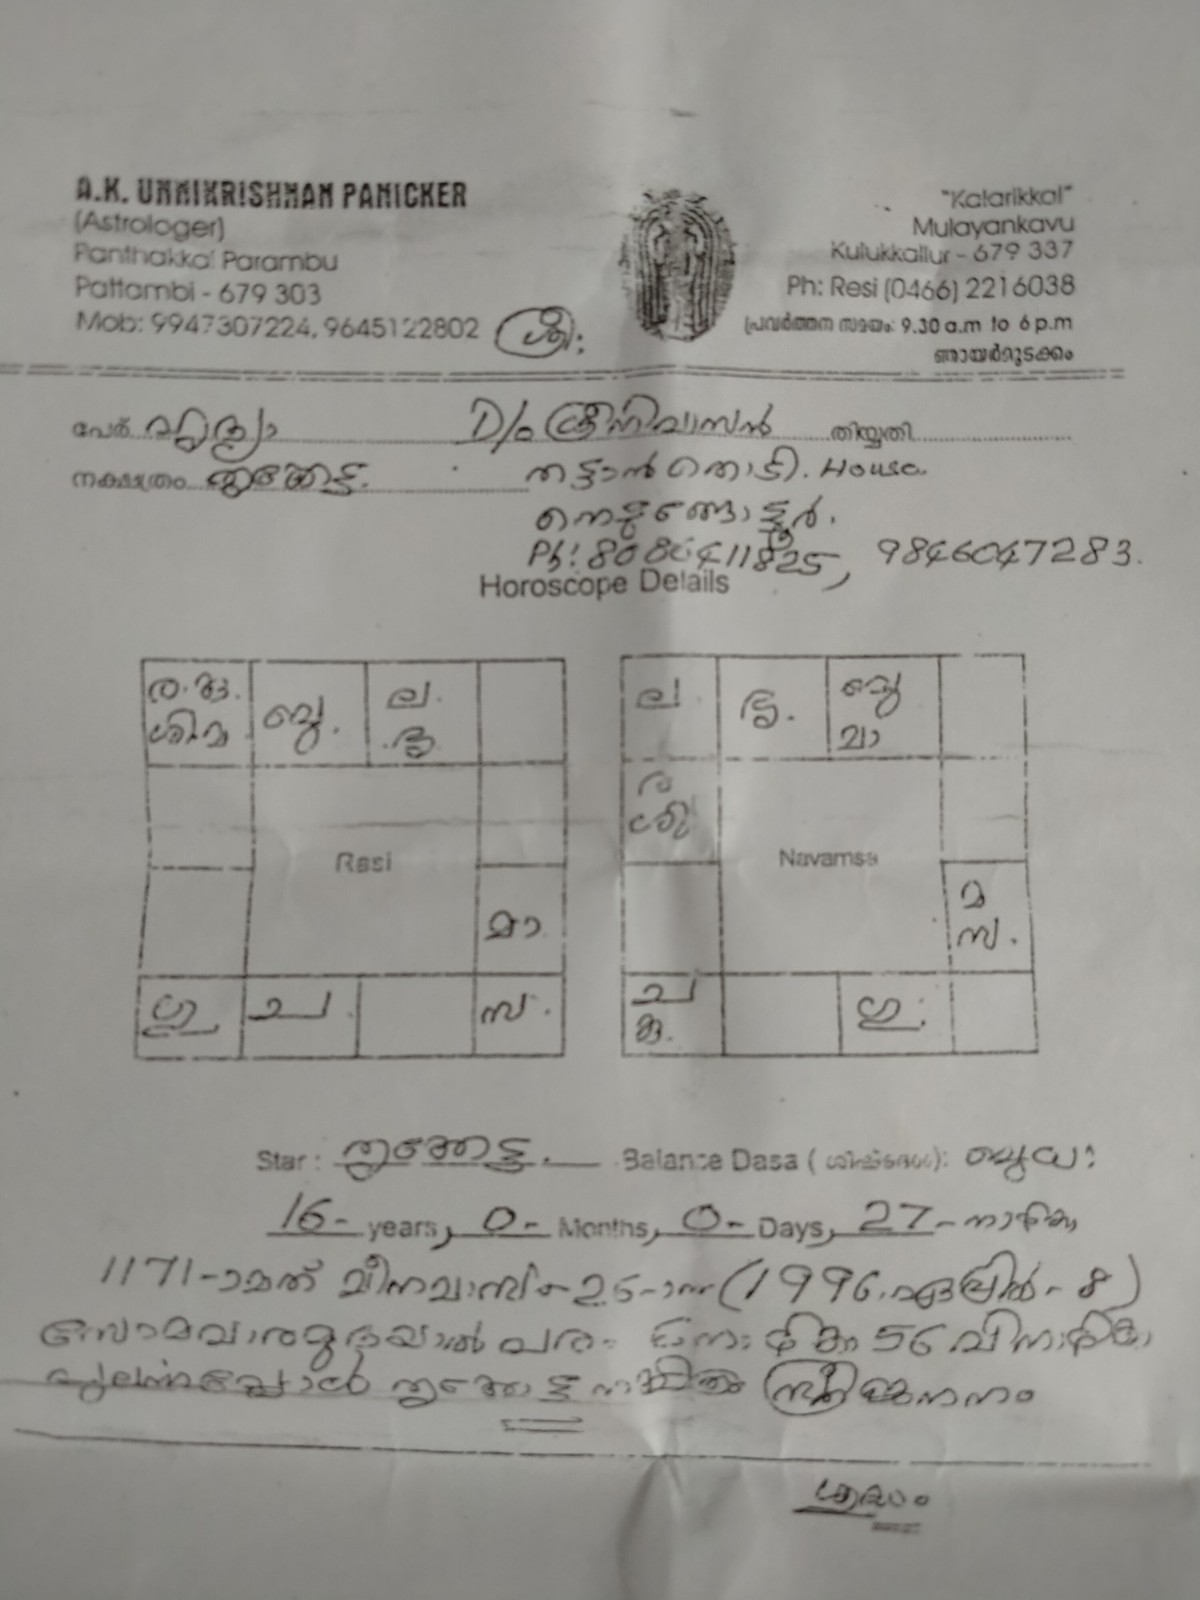 A.K. UNNIKRISHNAN PANICKER
(Astrologer)
Panthakkal Parambu
Pattambi - 679 303
Mob: 9947307224, 9645122802
ശ്രീ:
"Kalarikkal"
Mulayankavu
Kulukkallur - 679 337
Ph: Resi (0466) 2216038
പ്രവർത്തന സമയം: 9.30 a.m to 6 p.m
ഞായർമുടക്കം
പേര് D/o ശ്രീനിവാസൻ തിയ്യതി
നക്ഷത്രം തൃക്കേട്ട. തട്ടാൻ തൊടി. House.
നെടുങ്ങോട്ടൂർ.
Ph: 9846047283.
Horoscope Details
ല. ല. ബു
ശി.മ ബു. മാ
ര
ശി
Rasi Navamsa
മ
മാ സ.
ഗു ച. സ. ച ഗു.
Star: തൃക്കേട്ട. Balance Dasa (ശിഷ്ടദശ): ബുധ:
16- years, 0- Months, 0- Days, 27- നാഴിക
1171-ാമത് മീനമാസം 26-ാനു (1996.ഏപ്രിൽ - 8)
സോമവാരമുദയാൽപരം 56 വിനാഴിക
പുലർന്നപ്പോൾ തൃക്കേട്ട നാളിൽ സ്ത്രീജനനം
ശുഭം